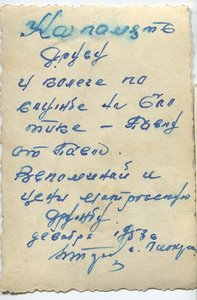 На память
Другу
и колеге по
службе на Бал
тике – Павлу
от Павла.
Вспоминай и
цени матросскую
дружбу.
декабрь